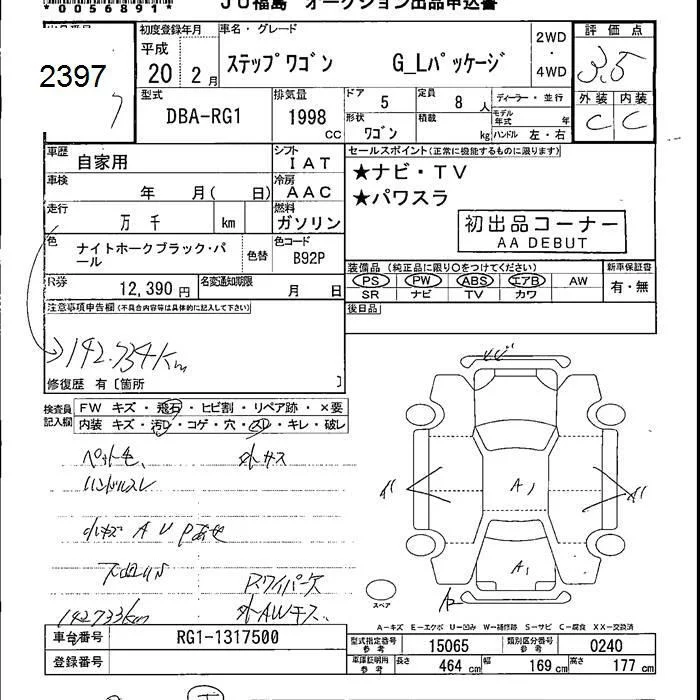 *0056891*
JU福島 オークション出品申込書
2397
初度登録年月
平成
20 2月
車名・グレード
ステップワゴン G_Lパッケージ
2WD
・
4WD
評価点
3.5
型式
DBA-RG1
排気量
1998
CC
ドア
5
定員
8人
形状
ワゴン
積載
kg
ディーラー・並行
モデル年式
年
ハンドル 左・右
外装 内装
C C
車歴
自家用
シフト
IAT
車検
年 月( 日)
冷房
AAC
走行
万 千 km
燃料
ガソリン
色
ナイトホークブラック・パール
色替
色コード
B92P
R券
12,390円
名変通知期限
月 日
セールスポイント(正常に機能するものに限ります)
★ナビ・TV
★パワスラ
初出品コーナー
AA DEBUT
装備品 (純正品に限り○をつけてください)
PS PW ABS エアB AW
SR ナビ TV カワ
新車保証書
有・無
後日品
注意事項申告欄(不具合内容等は具体的に記入して下さい)
142.734km
修復歴 有〔箇所 〕
検査員記入欄
FW キズ・飛石・ヒビ割・リペア跡・×要
内装 キズ・汚レ・コゲ・穴・スレ・キレ・破レ
ハンドルスレ
142733km
A1
A1
スペア
A-キズ E-エクボ U-凹み W-補修跡 S-サビ C-腐食 XX-交換済
車台番号
RG1-1317500
登録番号
型式指定番号
参考
15065
類別区分番号
参考
0240
車庫証明用
参考
長さ
464 cm
幅
169 cm
高さ
177 cm